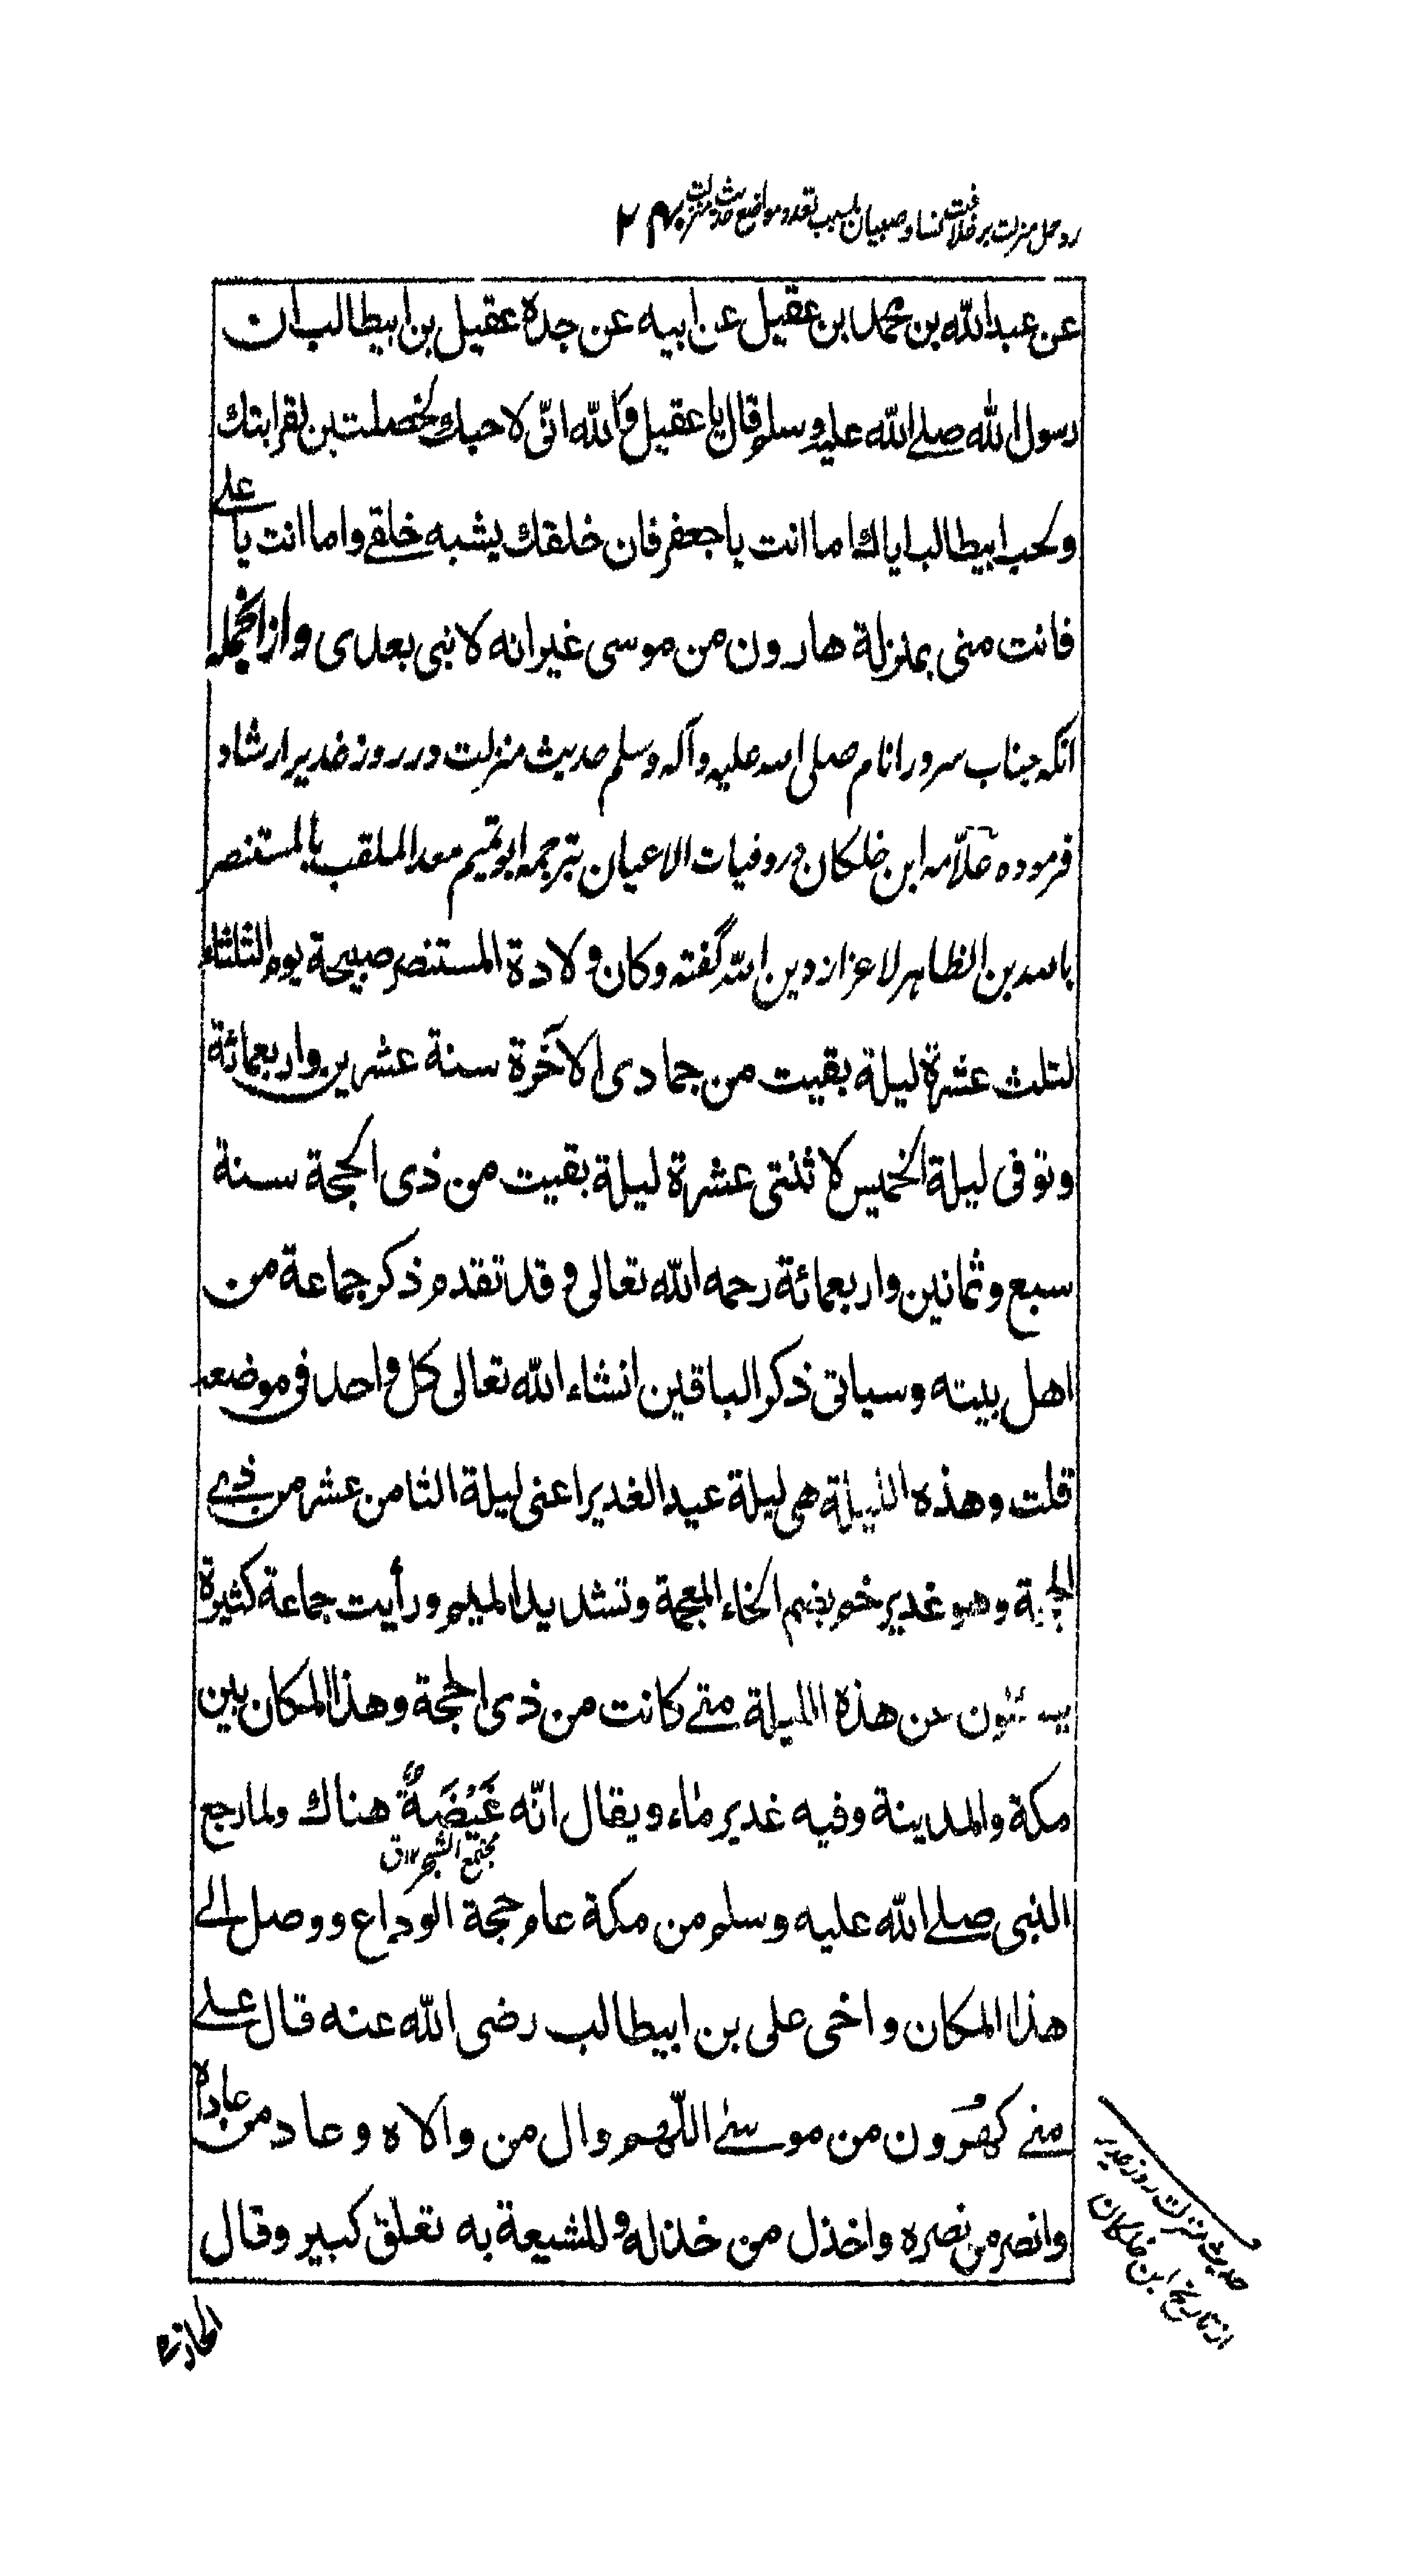 رد حمل منزلت بر خلافت نسا و صبيان بسبب تعدد مواضع حديث منزلت
عن عبدالله بن محمد بن عقيل عن ابيه عن جده عقيل بن ابيطالب ان
رسول الله صلے الله عليه وسلم قال يا عقيل والله انّى لاحبك لخصلتين لقرابتك
ولحب ابيطالب اياك اما انت يا جعفر فان خلقك يشبه خلقے واما انت يا علے
فانت منى بمنزلة هارون من موسى غير انه لا نبى بعدى وازانجمله
آنكه جناب سرور انام صلى الله عليه وآله وسلم حديث منزلت در روز غدير ارشاد
فرموده علّامه ابن خلكان در وفيات الاعيان بترجمه ابو تميم معد الملقب بالمستنصر
بالله بن الظاهر لاعزاز دين الله گفته وكان ولادة المستنصر صبيحة يوم الثلثاء
لثلث عشرة ليلة بقيت من جمادى الآخرة سنة عشرين واربعمائة
وتوفى ليلة الخميس لاثنتى عشرة ليلة بقيت من ذى الحجة سنة
سبع وثمانين واربعمائة رحمه الله تعالى وقد تقدم ذكر جماعة من
اهل بيته وسياتى ذكر الباقين انشاء الله تعالى كل واحد فى موضعه
قلت وهذه الليلة هى ليلة عيد الغدير اعنى ليلة الثامن عشر من ذى
الحجة وهو غدير خم بضم الخاء المعجمة وتشديد الميم ورأيت جماعة كثيرة
يسئلون عن هذه الليلة متے كانت من ذى الحجة وهذا المكان بين
مكة والمدينة وفيه غدير ماء ويقال انّه غَيْضَةٌ هناك ولما رجع
مجتمع الشجر ١٢ ق
النبى صلے الله عليه وسلم من مكة عام حجة الوداع ووصل الے
هذا المكان واخى على بن ابيطالب رضى الله عنه قال علے
منے كهرون من موسىٰ اللّهم وال من والاه وعاد من عاداه
وانصر من نصره واخذل من خذله وللشيعة به تعلق كبير وقال
حديث منزلت روز غدير
از تاريخ ابن خلكان
الحازمے